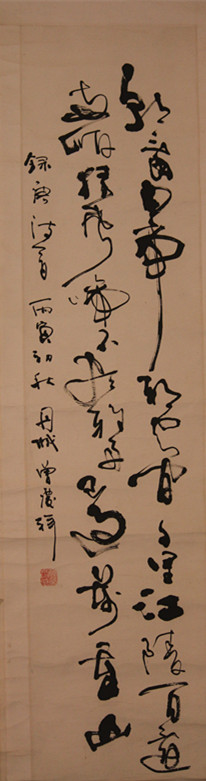 朝辭白帝彩雲間千里江陵一日還
兩岸猿聲啼不住輕舟已過萬重山
録唐詩一首 丙寅初秋 丹城曾慶